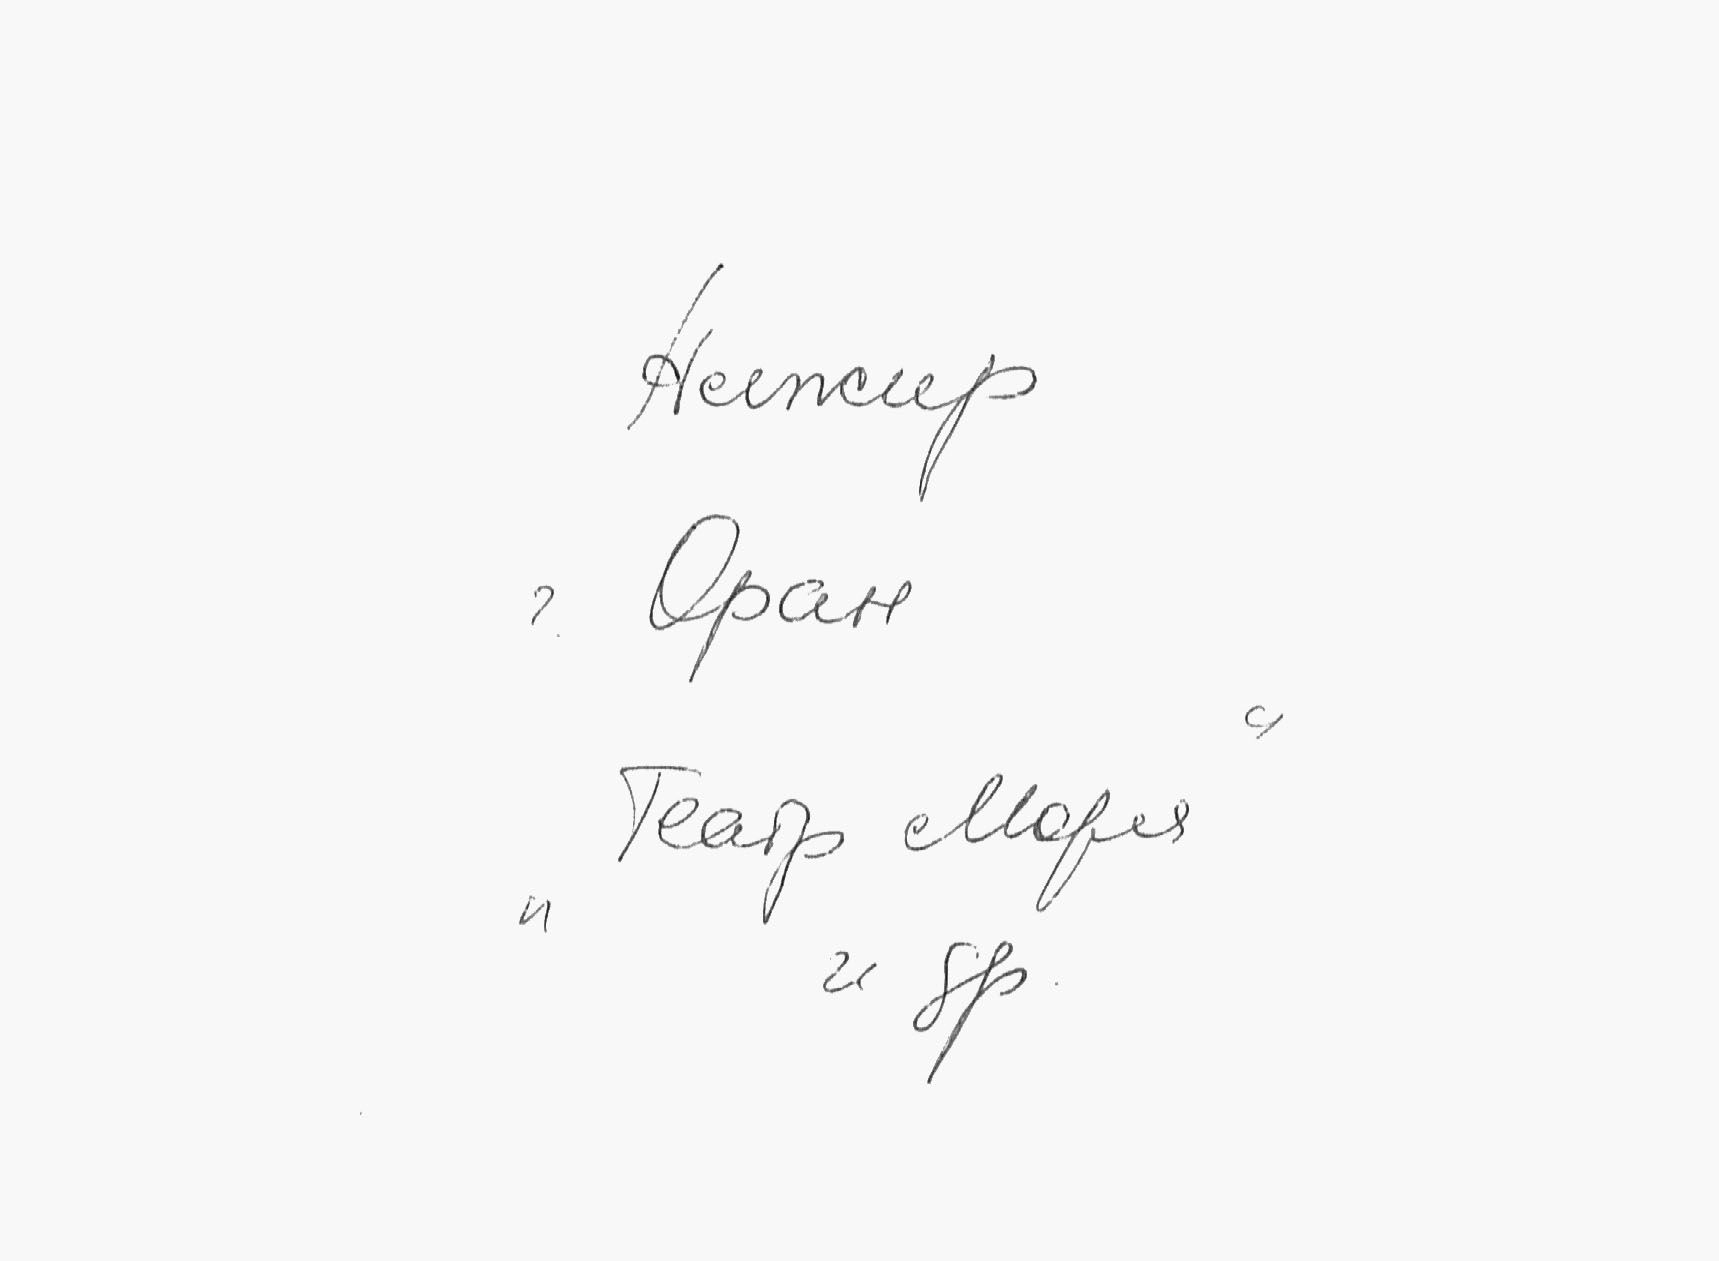 Алжир
г. Оран
"Театр Моря"
и др.